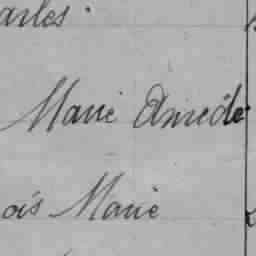 arles.
Marie Amédé
ois Marie